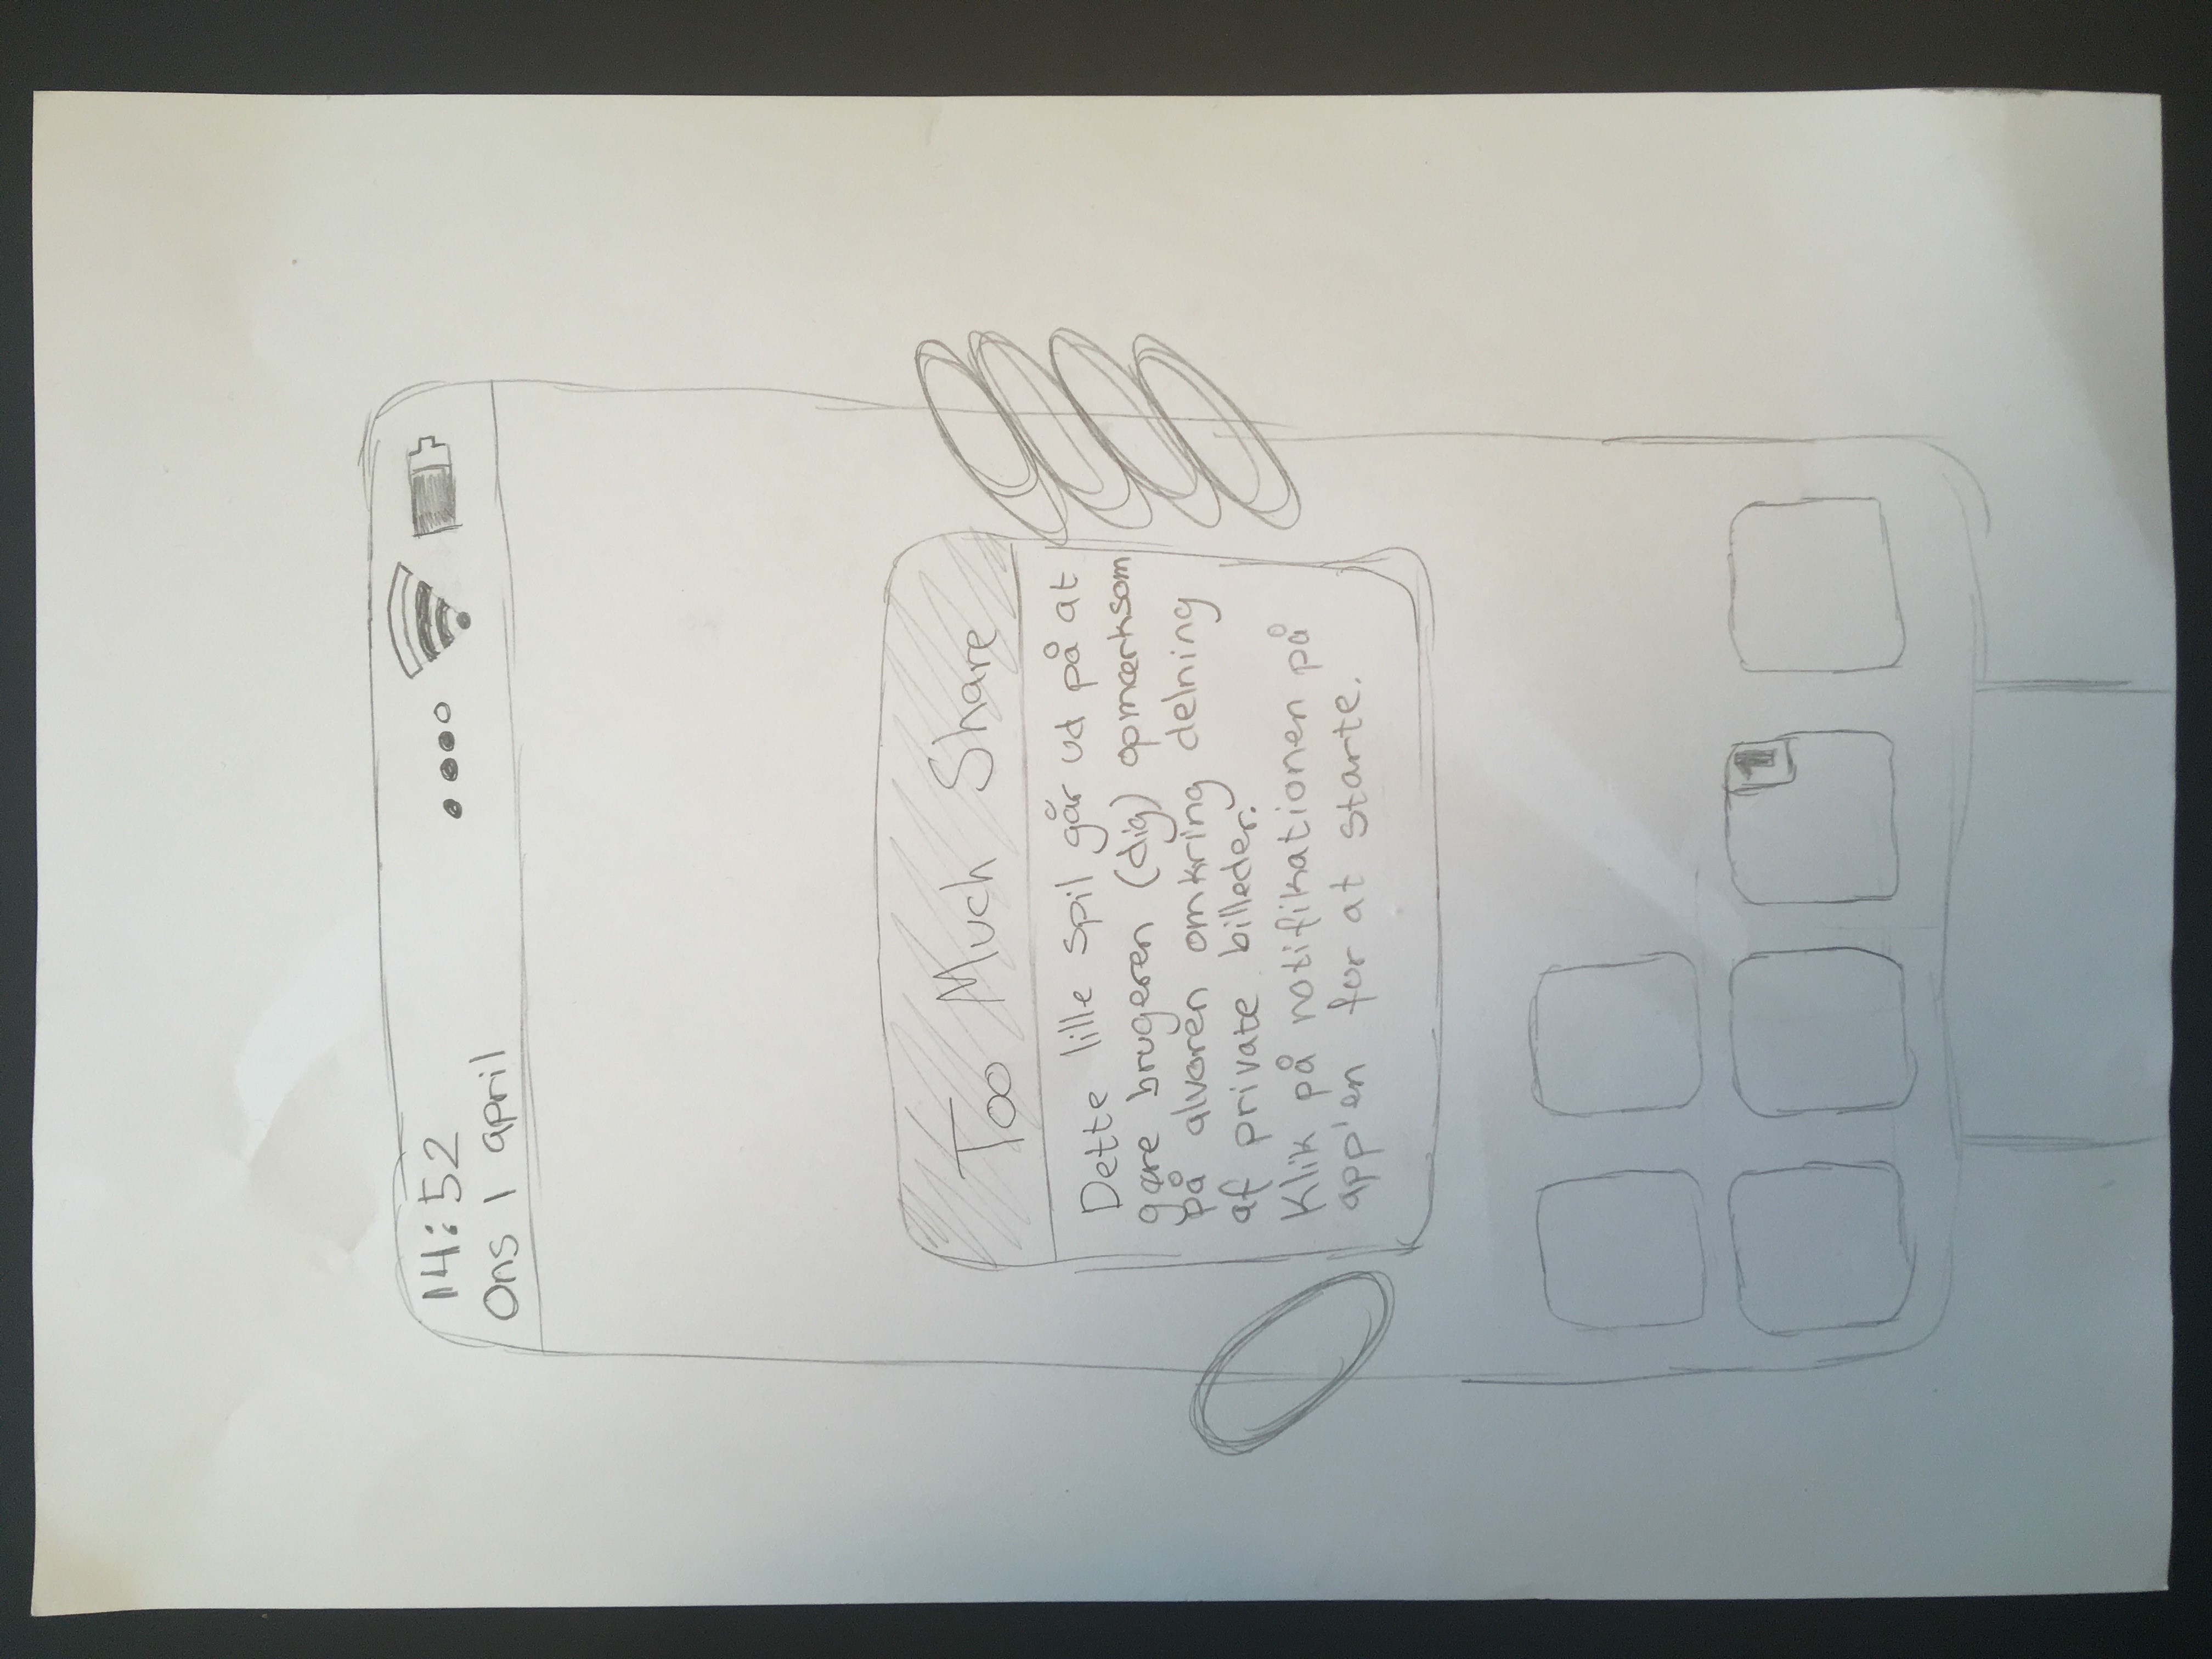 14:52
Ons 1 april
Too Much Share
Dette lille spil går ud på at
gøre brugeren (dig) opmærksom
på alvoren omkring delning
af private billeder.
Klik på notifikationen på
app'en for at starte.
1